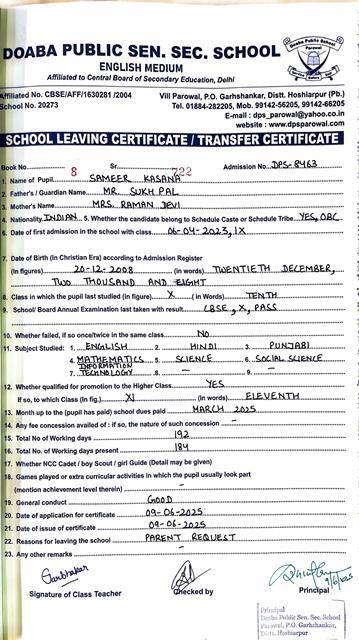 DOABA PUBLIC SEN. SEC. SCHOOL
ENGLISH MEDIUM
Affiliated to Central Board of Secondary Education, Delhi
Affiliated No. CBSE/AFF/1630281 /2004
School No. 20273
Vill Parowal, P.O. Garhshankar, Distt. Hoshiarpur (Pb.)
Tel. 01884-282205, Mob. 99142-56205, 99142-66205
E-mail : dps_parowal@yahoo.co.in
website : www.dpsparowal.com
SCHOOL LEAVING CERTIFICATE / TRANSFER CERTIFICATE
Book No. 8 Sr. 722 Admission No. DPS-8463
1. Name of Pupil SAMEER KASANA
2. Father's / Guardian Name MR. SUKH PAL
3. Mother's Name MRS. RAMAN DEVI
4. Nationality INDIAN 5. Whether the candidate belong to Schedule Caste or Schedule Tribe YES, OBC
6. Date of first admission in the school with class 06-04-2023, IX
7. Date of Birth (In Christian Era) according to Admission Register
(In figures) 20-12-2008 (in words) TWENTIETH DECEMBER,
TWO THOUSAND AND EIGHT
8. Class in which the pupil last studied (in figure) X ( in Words) TENTH
9. School/ Board Annual Examination last taken with result CBSE, X, PASS
10. Whether failed, if so once/twice in the same class NO
11. Subject Studied: 1. ENGLISH 2. HINDI 3. PUNJABI
4. MATHEMATICS 5. SCIENCE 6. SOCIAL SCIENCE
7. INFORMATION TECHNOLOGY 8. - 9. -
12. Whether qualified for promotion to the Higher Class YES
If so, to which Class (In fig.) XI (In Words) ELEVENTH
13. Month up to the (pupil has paid) school dues paid MARCH 2025
14. Any fee concession availed of : if so, the nature of such concession -
15. Total No of Working days 192
16. Total No. of Working days present 184
17. Whether NCC Cadet / boy Scout / girl Guide (Detail may be given)
18. Games played or extra curricular activities in which the pupil usually look part
(mention achievement level therein) -
19. General conduct GOOD
20. Date of application for certificate 09-06-2025
21. Date of issue of certificate 09-06-2025
22. Reasons for leaving the school PARENT REQUEST
23. Any other remarks -
Signature of Class Teacher
Checked by
Principal
Principal
Doaba Public Sen. Sec. School
Parowal, P.O. Garhshankar,
Distt. Hoshiarpur